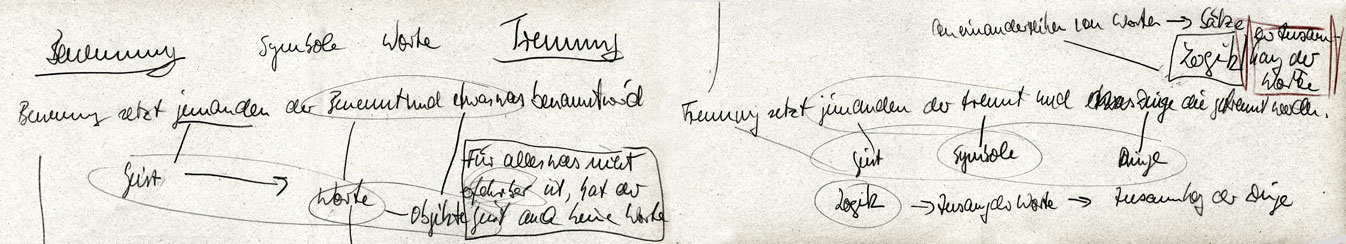 Benennung Symbole Worte Trennung
Benennung setzt jemanden der Benennt und etwas was benannt wird
Geist
Worte
Objekte
Für alles was nicht
erfahrbar ist, hat der
Geist auch keine Worte
aneinanderreihen von Worten → Sätze
Logik
der Zusammen-
hang der
Worte
Trennung setzt jemanden der trennt und Dinge die getrennt werden.
Geist Symbole Dinge
Logik → der Worte → der Dinge